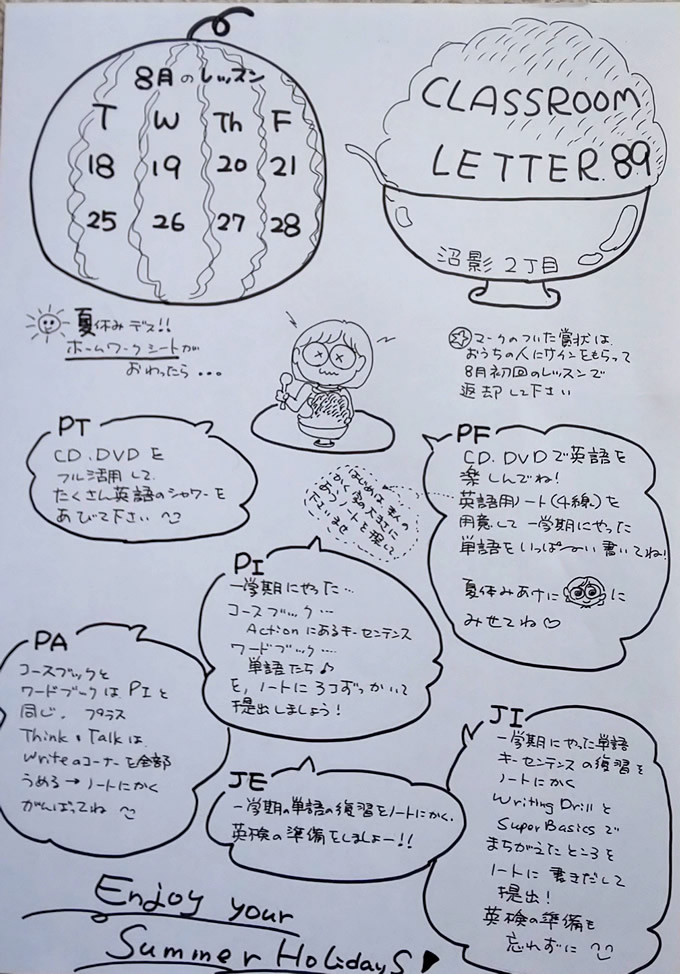 8月のレッスン
T W Th F
18 19 20 21
25 26 27 28
CLASSROOM
LETTER.89
沼影2丁目
夏休みデス!!
ホームワークシートが
おわったら...
マークのついた賞状は、
おうちの人にサインをもらって
8月初回のレッスンで
返却して下さい
PT
CD、DVDを
フル活用して、
たくさん英語のシャワーを
あびて下さい
PF
CD、DVDで英語を
楽しんでね!
英語用ノート(4線)を
用意して一学期にやった
単語をいっぱ〜い書いてね!
夏休みあけに に
みせてね♡
はじめは まんが
かく字の大きさに
あうノートを探して
下さいませ
PI
一学期にやった…
コースブック…
Actionにあるキーセンテンス
ワードブック…
単語たち♪
を、ノートに3コずつかいて
提出しましょう!
PA
コースブックと
ワードブックはPIと
同じ。プラス
Think & Talkは、
Writeのコーナーを全部
うめる→ノートにかく
がんばってね
JE
一学期の単語の復習をノートにかく.
英検の準備をしましょー!!
JI
一学期にやった単語
キーセンテンスの復習を
ノートにかく
Writing Drillと
Super Basicsで
まちがえたところを
ノートに書きだして
提出!
英検の準備を
忘れずに
Enjoy your
Summer Holidays